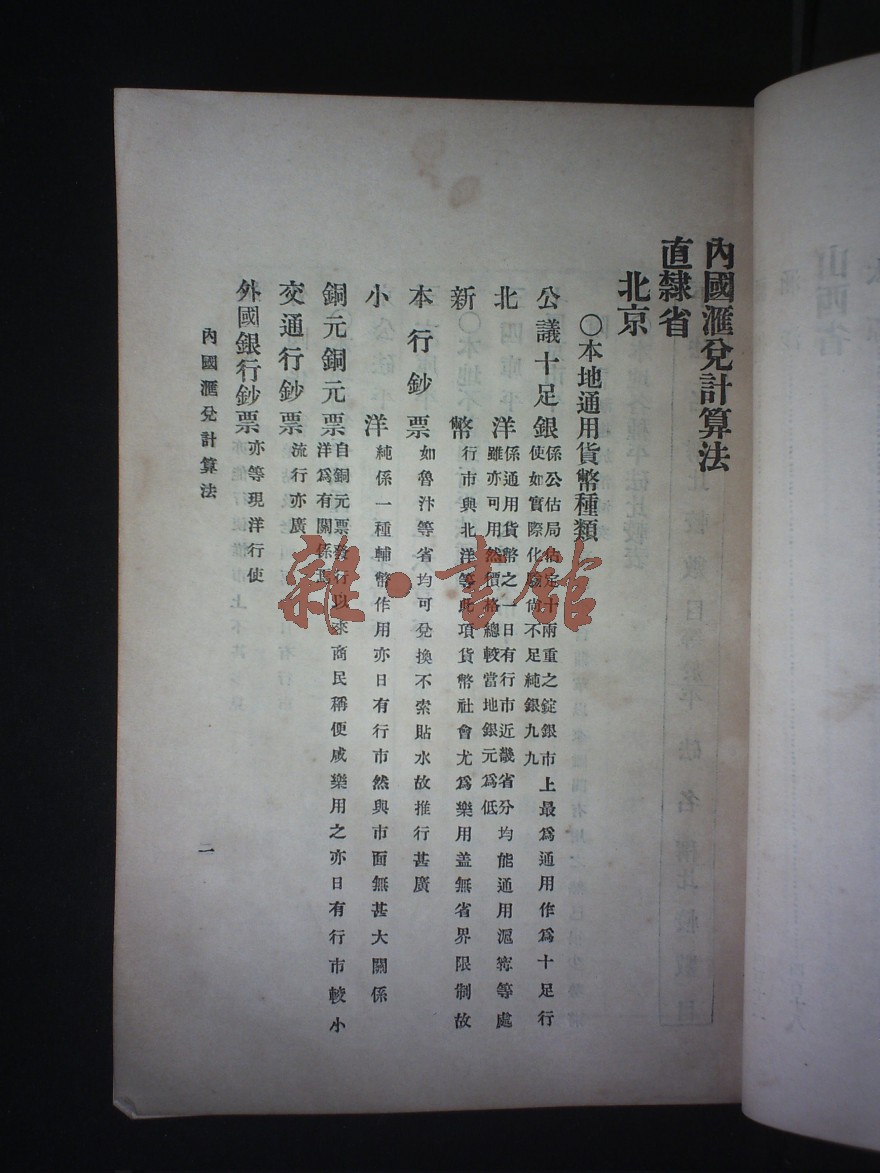 內國滙兌計算法
直隸省
北京
○本地通用貨幣種類
公議十足銀 係公估局估定十兩重之錠銀市上最爲通用作爲十足行
使如實際化驗尚不足純銀九九
北洋 係通用貨幣之一日有行市近畿省分均能通用滬寗等處
雖亦可用然價格總較當地銀元爲低
新幣 行市與北洋等此項貨幣社會尤爲樂用盖無省界限制故
本行鈔票 如魯汴等省均可兌換不索貼水故推行甚廣
小洋 純係一種輔幣作用亦日有行市然與市面無甚大關係
銅元銅元票 自銅元票發行以來商民稱便咸樂用之亦日有行市較小
洋爲有關係焉
交通行鈔票 流行亦廣
外國銀行鈔票 亦等現洋行使
內國滙兌計算法 二
雜·書館